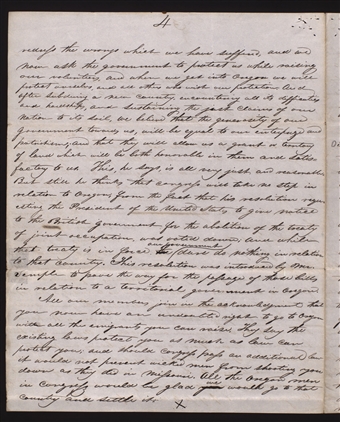 4
redress the wrongs which we have suffered, and we
now ask the government to protect us while raising
our volunteers, and when we get into Oregon we will
protect ourselves and all others who wish our protection. And
after subduing a new country, encountering all its difficulties
and hardships, and sustaining the just claims of our
nation to its soil, we believe that the generosity of our
government towards us, will be equal to our enterprise and
patriotism, and that they will allow us a grant or territory
of land which will be both honorable in them and satis
factory to us. This, he says, is all very just and reasonable
But still he thinks that congress will take no step in
relation to Oregon, from the fact that his resolution requ
esting the President of the United States, to give notice
to the British government for the abolition of the treaty
of joint occupation, was voted down; and while
that treaty is in force our government dare do nothing in relation
to that country. This resolution was introduced by Mr
Semple to pave the way for the passage of those bills
in relation to a territorial government in Oregon.
All our members join in the acknowledgement that
you now have an undoubted right to go to Oregon
with all the emigrants you can raise. They say the
existing laws protect you as much as law can
protect you; and should Congress pass an additional law
it would not prevent wicked men from shooting you
down as they did in Missouri. All the Oregon men
in Congress would be glad if we would go to that
country and settle it.